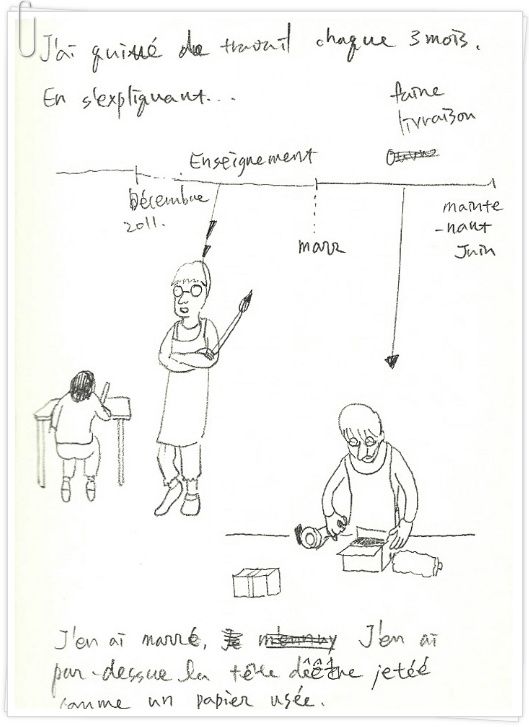 J'ai quitté de travail chaque 3 mois.
En s'expliquant...
faire
livraison
Enseignement
Décembre
2011.
mars
mainte
-nant
Juin
J'en ai marre, J'en ai
par-dessue la tête dêêtre jetéé
comme un papier usée.